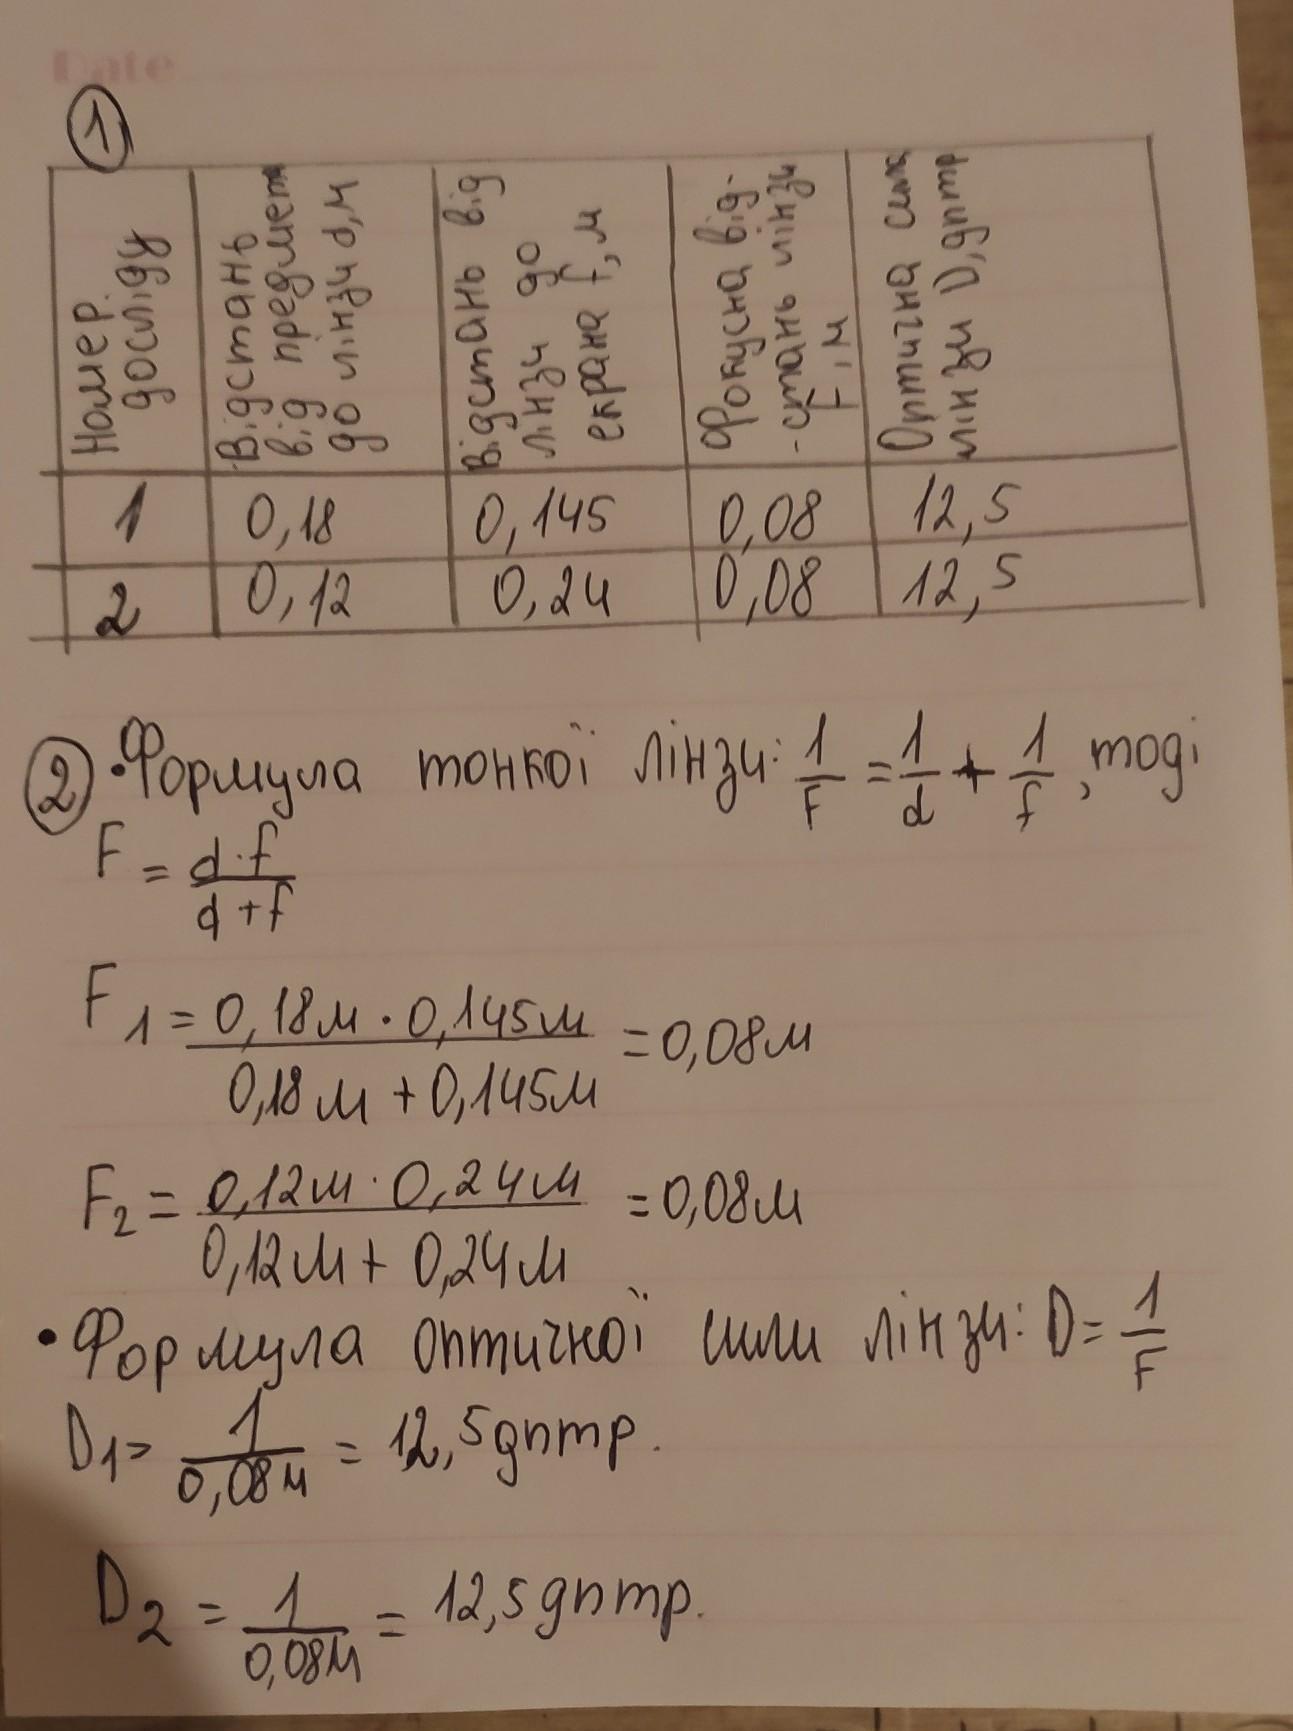 Date
1
Номер досліду
Відстань від предмета до лінзи d, м
Відстань від лінзи до екрана f, м
Фокусна від- -стань лінзи F, м
Оптична сила лінзи D, дптр
1 0,18 0,145 0,08 12,5
2 0,12 0,24 0,08 12,5
2 • Формула тонкої лінзи: 1/F = 1/d + 1/f, тоді
F = d·f / d+f
F1 = 0,18м · 0,145м / 0,18м + 0,145м = 0,08м
F2 = 0,12м · 0,24м / 0,12м + 0,24м = 0,08м
• Формула оптичної сили лінзи: D = 1/F
D1 = 1/0,08м = 12,5дптр.
D2 = 1/0,08м = 12,5дптр.